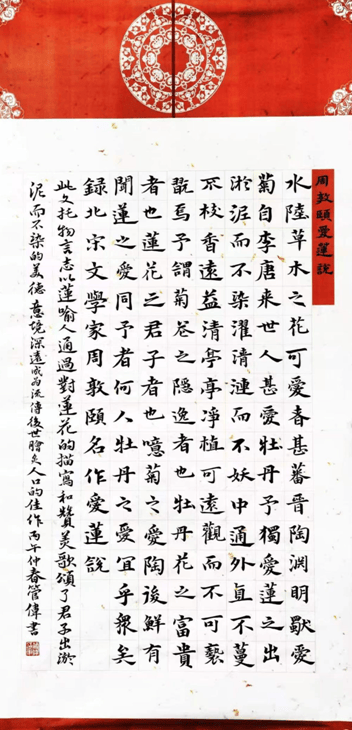 周敦頤愛蓮說
水陸草木之花可愛者甚蕃晉陶渊明獨愛
菊自李唐来世人甚愛牡丹予獨愛蓮之出
淤泥而不染濯清漣而不妖中通外直不蔓
不枝香遠益清亭亭淨植可遠觀而不可褻
翫焉予謂菊花之隱逸者也牡丹花之富貴
者也蓮花之君子者也噫菊之愛陶後鮮有
聞蓮之愛同予者何人牡丹之愛宜乎衆矣
録北宋文學家周敦頤名作愛蓮說
此文托物言志以蓮喻人通過對蓮花的描寫和贊美歌頌了君子出淤
泥而不染的美德意境深遠成為流傳後世膾炙人口的佳作丙午仲春管偉書